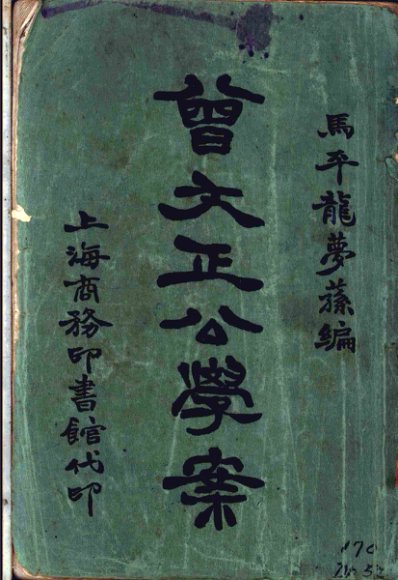 馬平龍夢蓀編
曾文正公學案
上海商務印書館代印